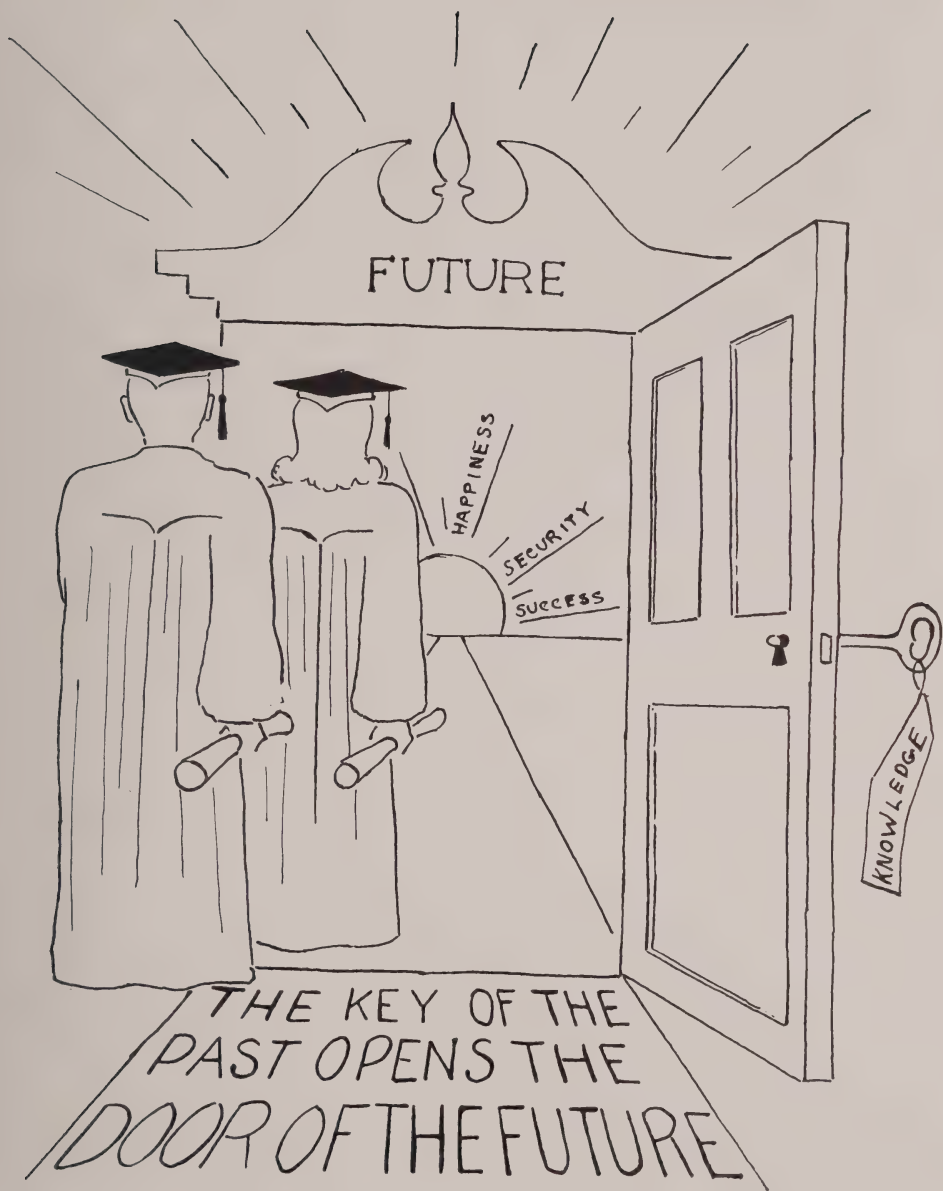 FUTURE
HAPPINESS
SECURITY
SUCCESS
KNOWLEDGE
THE KEY OF THE
PAST OPENS THE
DOOR OF THE FUTURE